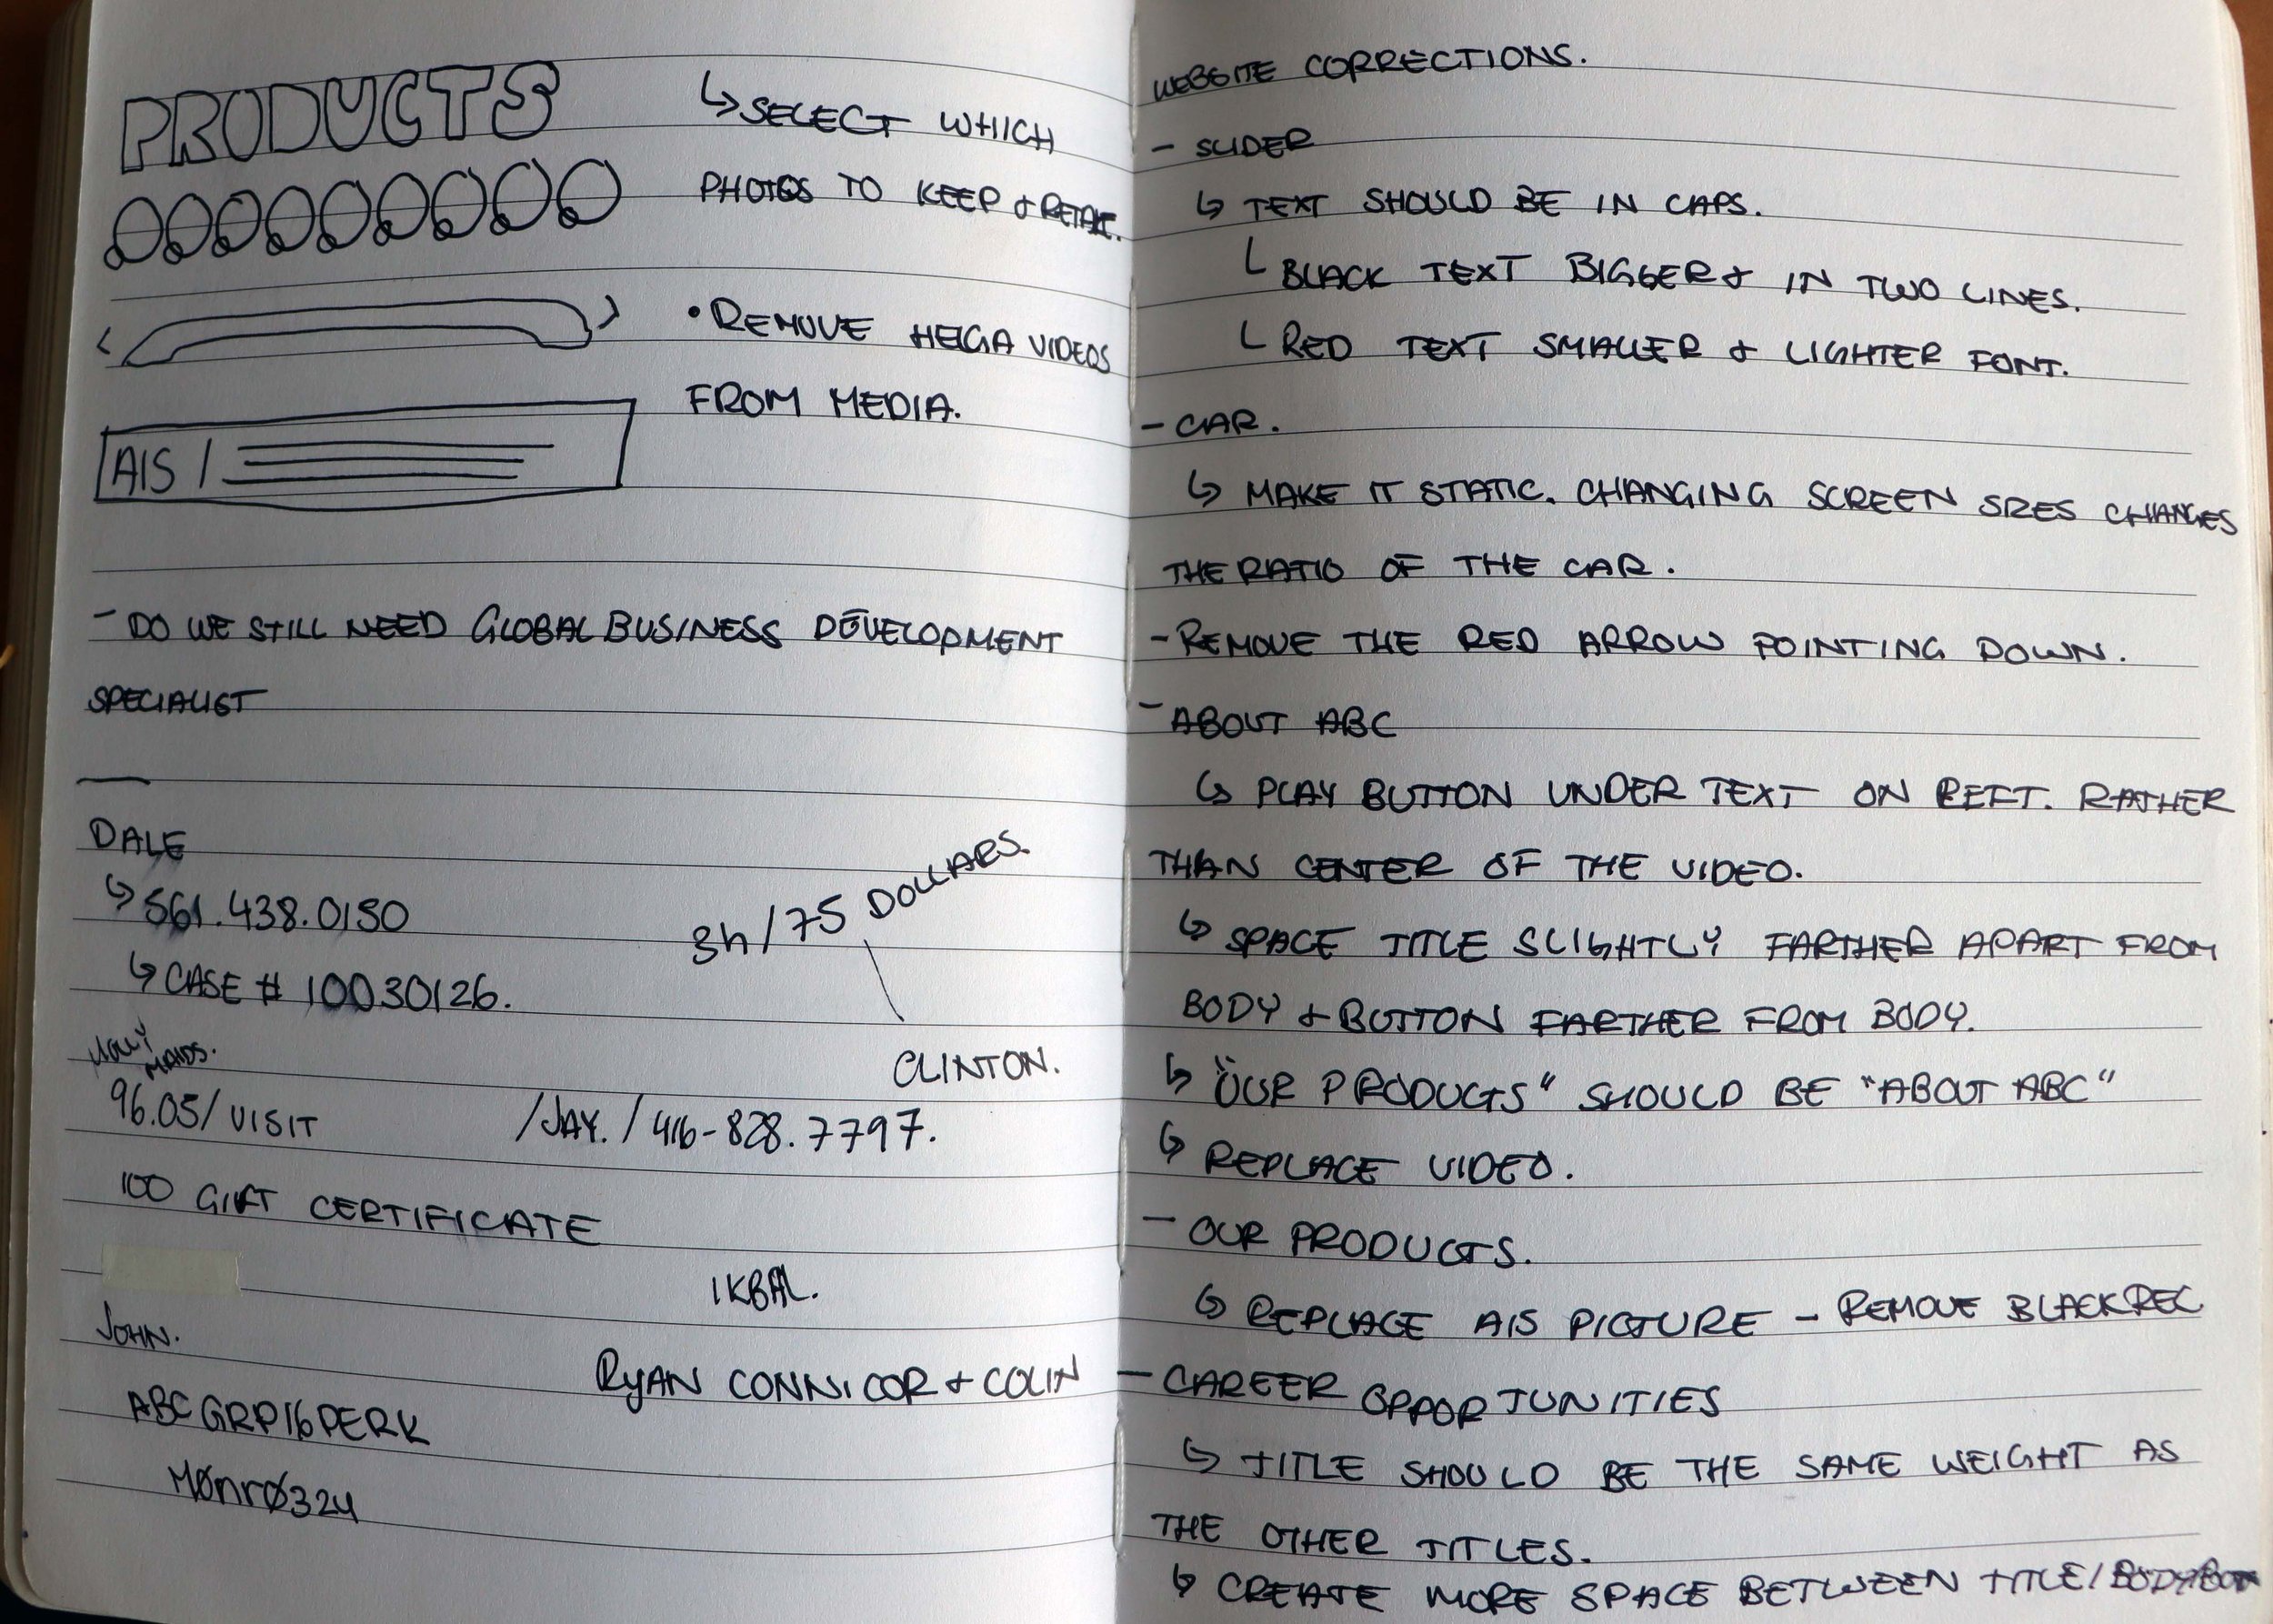 PRODUCTS
↳ SELECT WHICH
PHOTOS TO KEEP &
• REMOVE HEIGA VIDEOS
FROM MEDIA.
AIS /
- DO WE STILL NEED GLOBAL BUSINESS DEVELOPMENT
SPECIALIST
DALE
↳ 561.438.0150
↳ CASE # 10030126.
3h/75 DOLLARS.
CLINTON.
MOLLY
MAIDS.
96.05/VISIT
/JAY./416-828.7797.
100 GIFT CERTIFICATE
IKBAL.
JOHN.
RYAN CONNICOR & COLIN
ABCGRP16PERK
MØnrØ324
WEBSITE CORRECTIONS.
- SLIDER
↳ TEXT SHOULD BE IN CAPS.
└ BLACK TEXT BIGGER & IN TWO LINES.
└ RED TEXT SMALLER & LIGHTER FONT.
- CAR.
↳ MAKE IT STATIC. CHANGING SCREEN SIZES CHANGES
THE RATIO OF THE CAR.
- REMOVE THE RED ARROW POINTING DOWN.
- ABOUT ABC
↳ PLAY BUTTON UNDER TEXT ON LEFT. RATHER
THAN CENTER OF THE VIDEO.
↳ SPACE TITLE SLIGHTLY FARTHER APART FROM
BODY & BUTTON FARTHER FROM BODY.
↳ "OUR PRODUCTS" SHOULD BE "ABOUT ABC"
↳ REPLACE VIDEO.
- OUR PRODUCTS.
↳ REPLACE AIS PICTURE - REMOVE BLACK REC
- CAREER OPPORTUNITIES
↳ TITLE SHOULD BE THE SAME WEIGHT AS
THE OTHER TITLES.
↳ CREATE MORE SPACE BETWEEN TITLE/BODY/